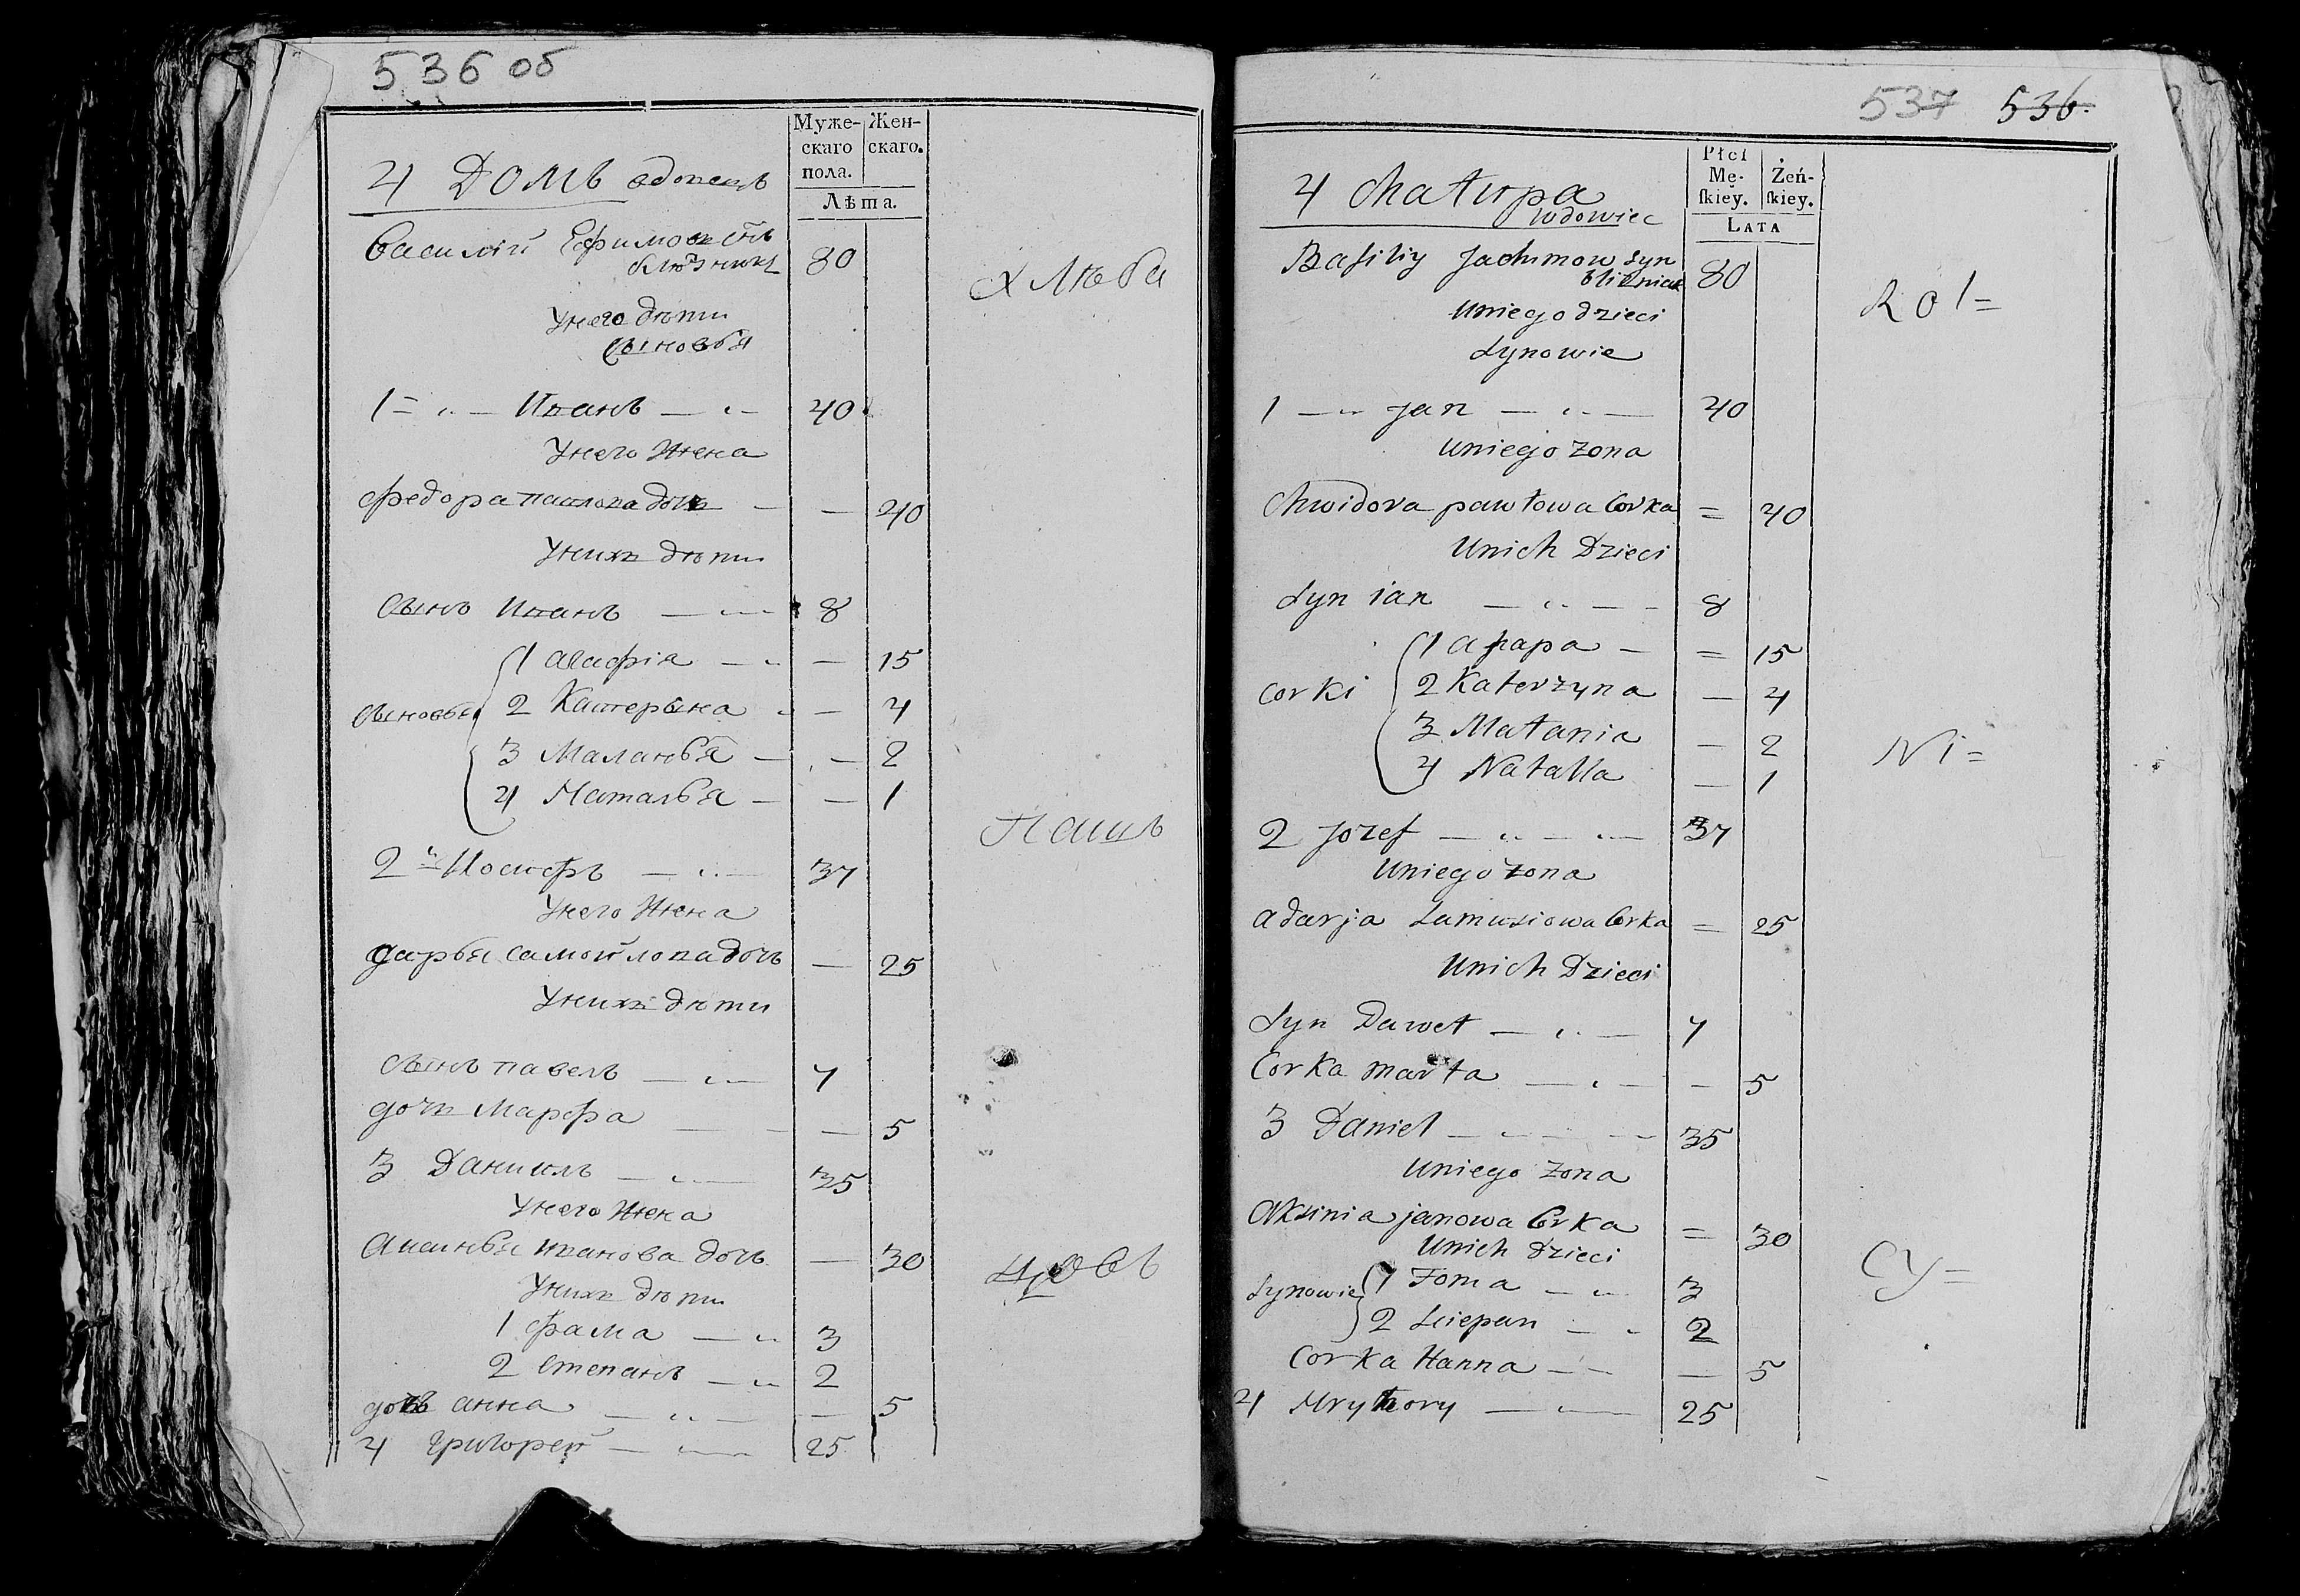 536 об
Муже-
скаго
пола.
Жен-
скаго.
Лѣта.
4 Домъ вдовецъ
Василій Ефимовъ снъ
близнюкъ 80
Хлѣба
У него дѣти
Сыновья
1 = „ — Иванъ — „ — 40
У него жена
Федора павлова дочь — — 40
У нихъ дѣти
Сынъ Иванъ — „ — 8
1 агафія — „ — 15
Сыновья 2 Катерына „ — 4
3 Маланья — „ — 2
4 Наталья — — 1
Пашъ
2 Иосифъ — „ — 37
У него жена
дарья самойлова дочь — 25
У нихъ дѣти
Сынъ павелъ — „ — 7
дочь Марфа — — — 5
3 Данилъ — „ — 35
У него жена
Аксинья иванова дочь — 30
цовъ
У нихъ дѣти
1 фама — „ 3
2 Степанъ — „ 2
дочь анна — „ — — 5
4 григорей — „ — 25
537 536.
Płci
Mę-
skiey.
Żeń-
skiey.
LATA
4 chatupa
wdowiec
Basiliy Jachimow syn
blizniak 80
Rol=
Uniego dzieci
Synowie
1 — „ Jan — „ — 40
Uniego zona
Chwidora pawłowa Corka = 40
Unich Dzieci
Syn ian — „ — - 8
1 ahapa — = 15
corki 2 Katerzyna — 4
3 Matania — 2
4 Natalla — 1
Ni=
2 Jozef — „ — „ — 37
Uniego zona
adarja Samusiowa Corka = 25
Unich Dzieci
Syn Dawet — „ — 7
Corka marta — „ — — 5
3 Daniel — „ — „ — 35
Uniego zona
Aksinia janowa Corka = 30
Unich dzieci
Cy=
Synowie 1 Foma — „ 3
2 Sciepan — „ 2
Corka Hanna — — — 5
4 Hryhory — „ — 25